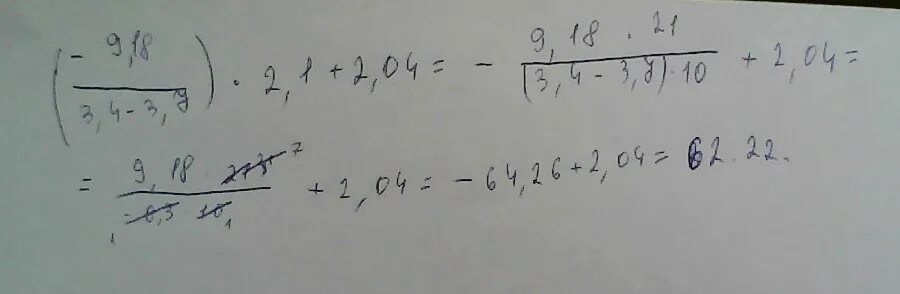 (- 9,18 / 3,4 - 3,7) · 2,1 + 2,04 = - 9,18 · 21 / (3,4 - 3,7) · 10 + 2,04 =
= 9,18 · 21 7 / -0,3 10 1 1 + 2,04 = - 64,26 + 2,04 = 62.22.